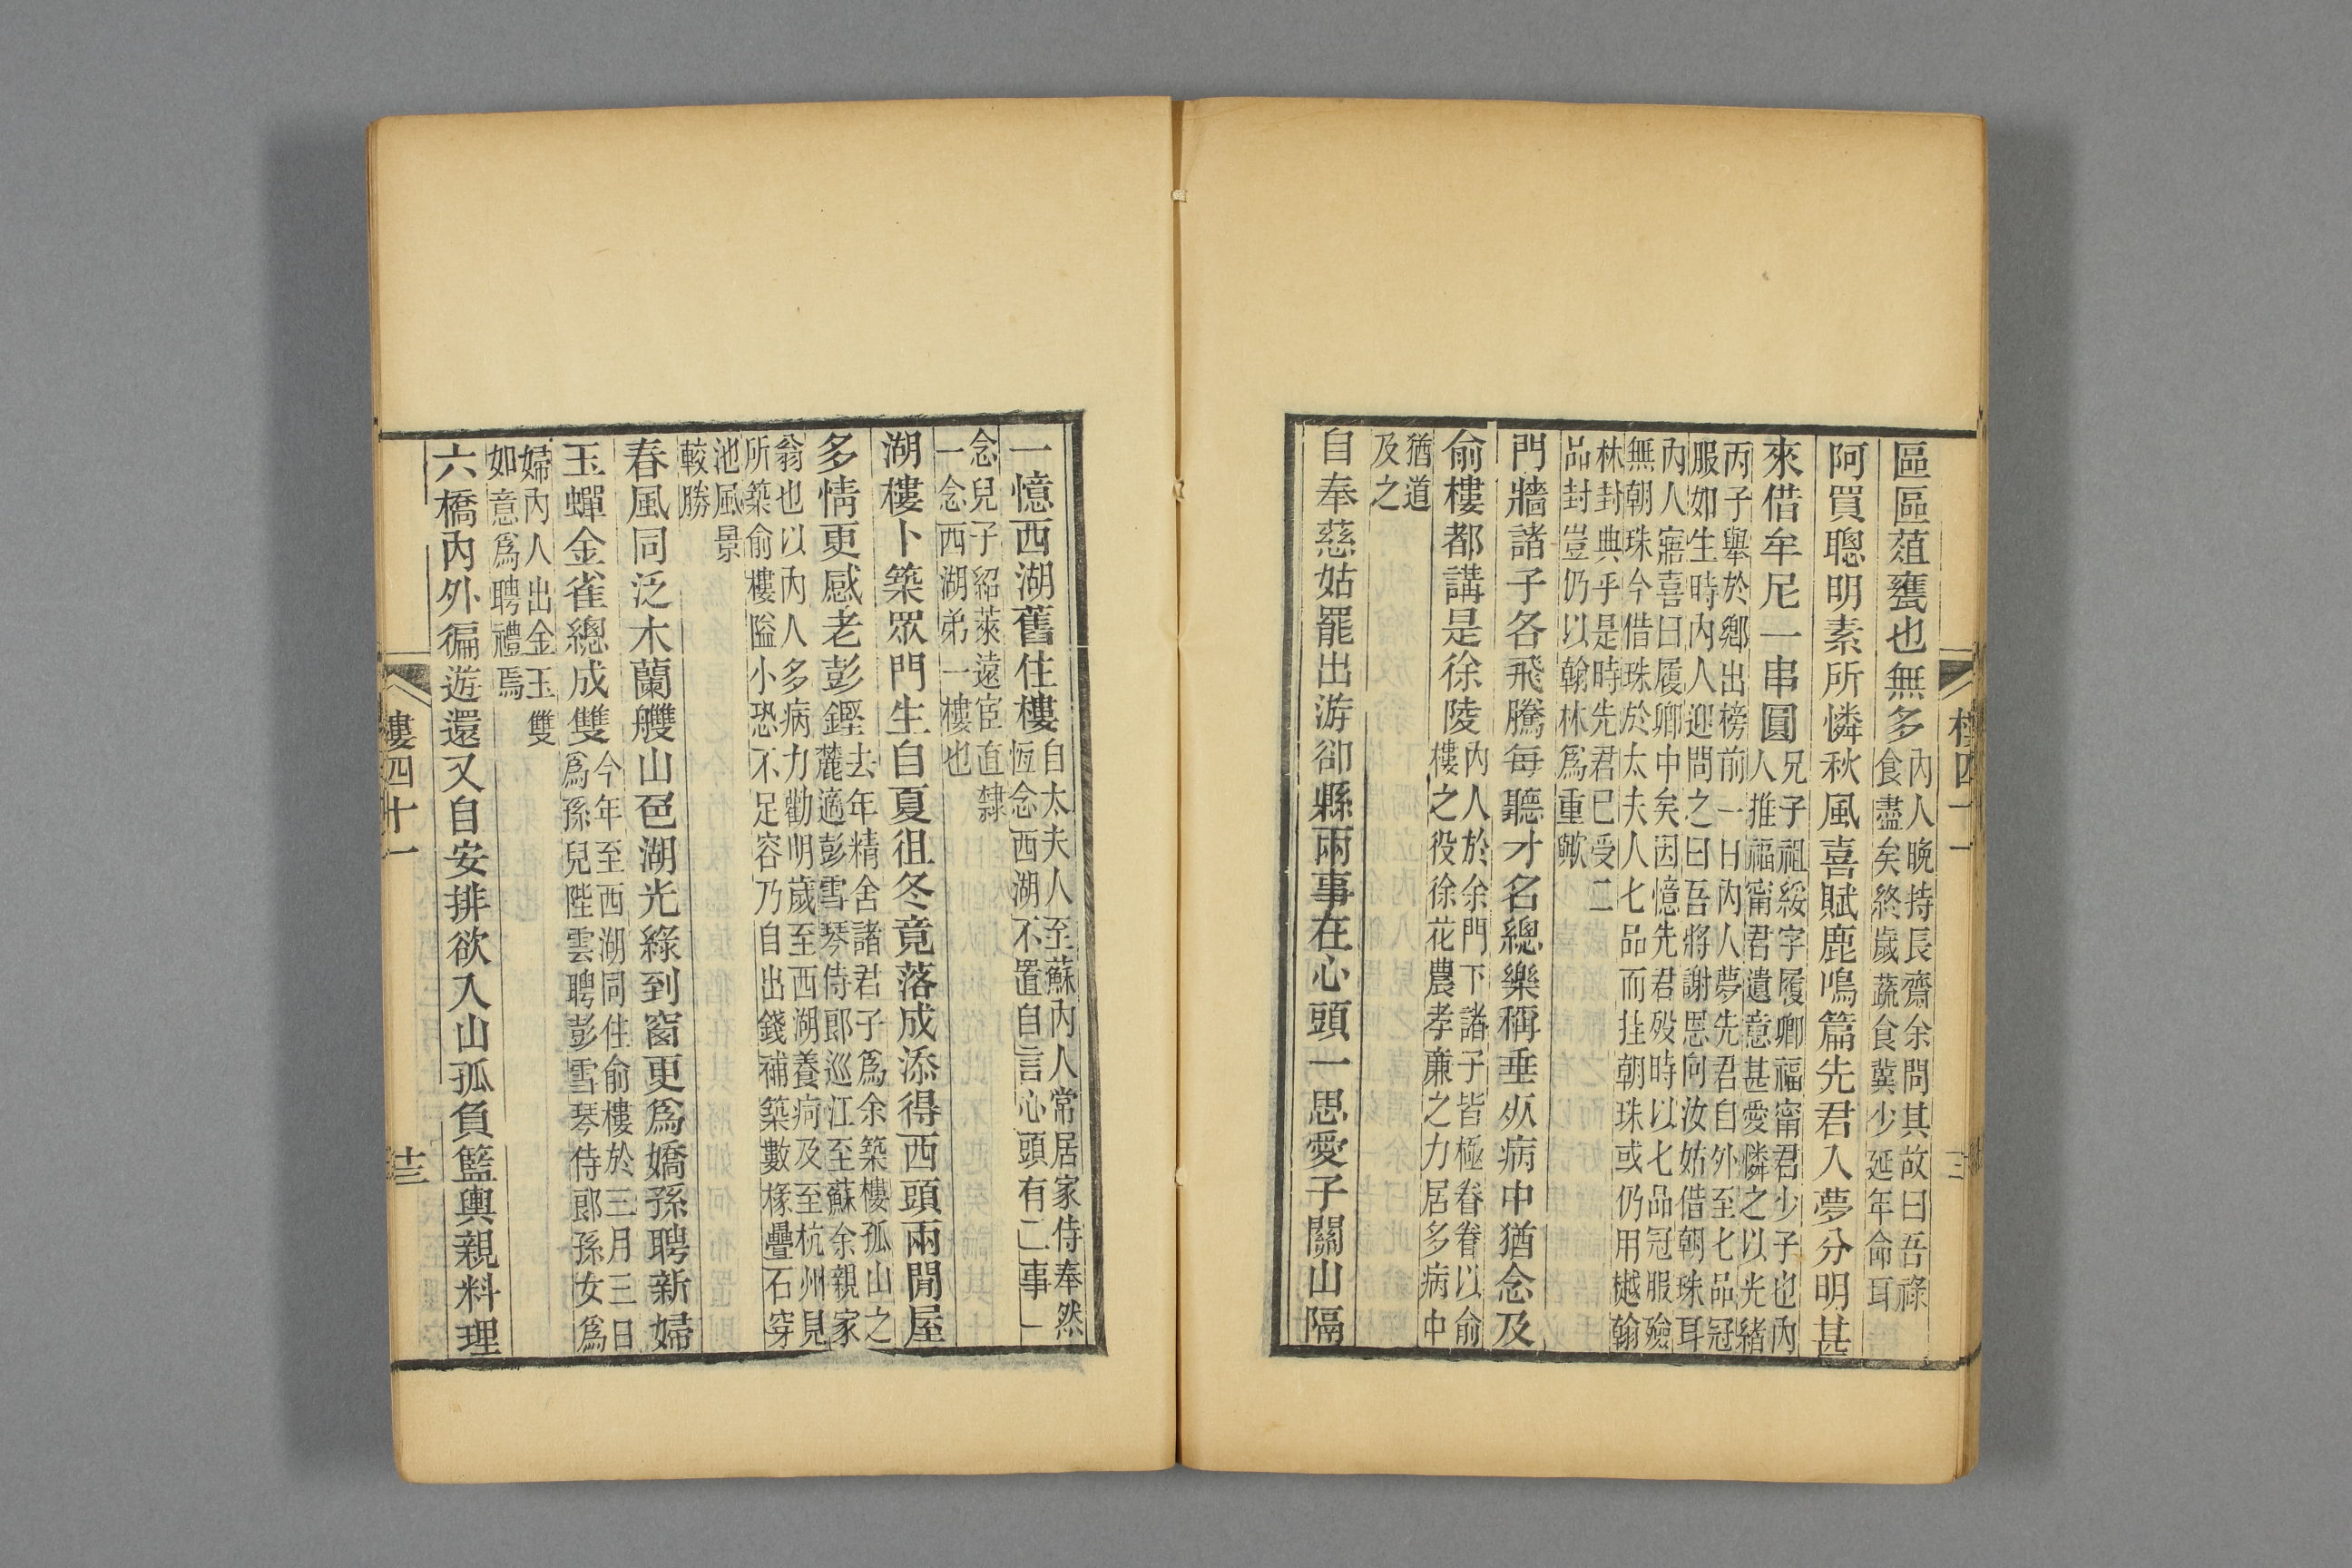 區區葅甕也無多
內人晚持長齋余問其故曰吾祿
食盡矣終歲蔬食冀少延年命耳
阿買聰明素所憐秋風喜賦鹿鳴篇先君入夢分明甚
來借牟尼一串圓
兄子祖綏字履卿福甯君少子也內
人推福甯君遺意甚愛憐之以光緒
丙子舉於鄉出榜前一日內人夢先君自外至七品冠
服如生時內人迎問之曰吾將謝恩向汝姑借朝珠耳
內人寤喜曰履卿中矣因憶先君歿時以七品冠服殮
無朝珠今借珠於太夫人七品而挂朝珠或仍用樾翰
林封典乎是時先君已受二
品封豈仍以翰林爲重歟
門牆諸子各飛騰每聽才名總樂稱垂死病中猶念及
俞樓都講是徐陵
內人於余門下諸子皆極眷眷以俞
樓之役徐花農孝廉之力居多病中
猶道
及之
自奉慈姑罷出游卻縣兩事在心頭一思愛子關山隔
一憶西湖舊住樓
自太夫人至蘇內人常居家侍奉然
恆念西湖不置自言心頭有二事一
念兒子紹萊遠宦直隸
一念西湖弟一樓也
湖樓卜築眾門生自夏徂冬竟落成添得西頭兩閒屋
多情更感老彭鏗
去年精舍諸君子爲余築樓孤山之
麓適彭雪琴侍郎巡江至蘇余親家
翁也以內人多病力勸明歲至西湖養疴及至杭州見
所築俞樓隘小恐不足容乃自出錢補築數椽疊石穿
池風景
較勝
春風同泛木蘭艭山色湖光綠到窗更爲嬌孫聘新婦
玉蟬金雀總成雙
今年至西湖同住俞樓於三月三日
爲孫兒陛雲聘彭雪琴侍郎孫女爲
婦內人出金玉雙
如意爲聘禮焉
六橋內外徧遊還又自安排欲入山孤負籃輿親料理
樓四十一
十三